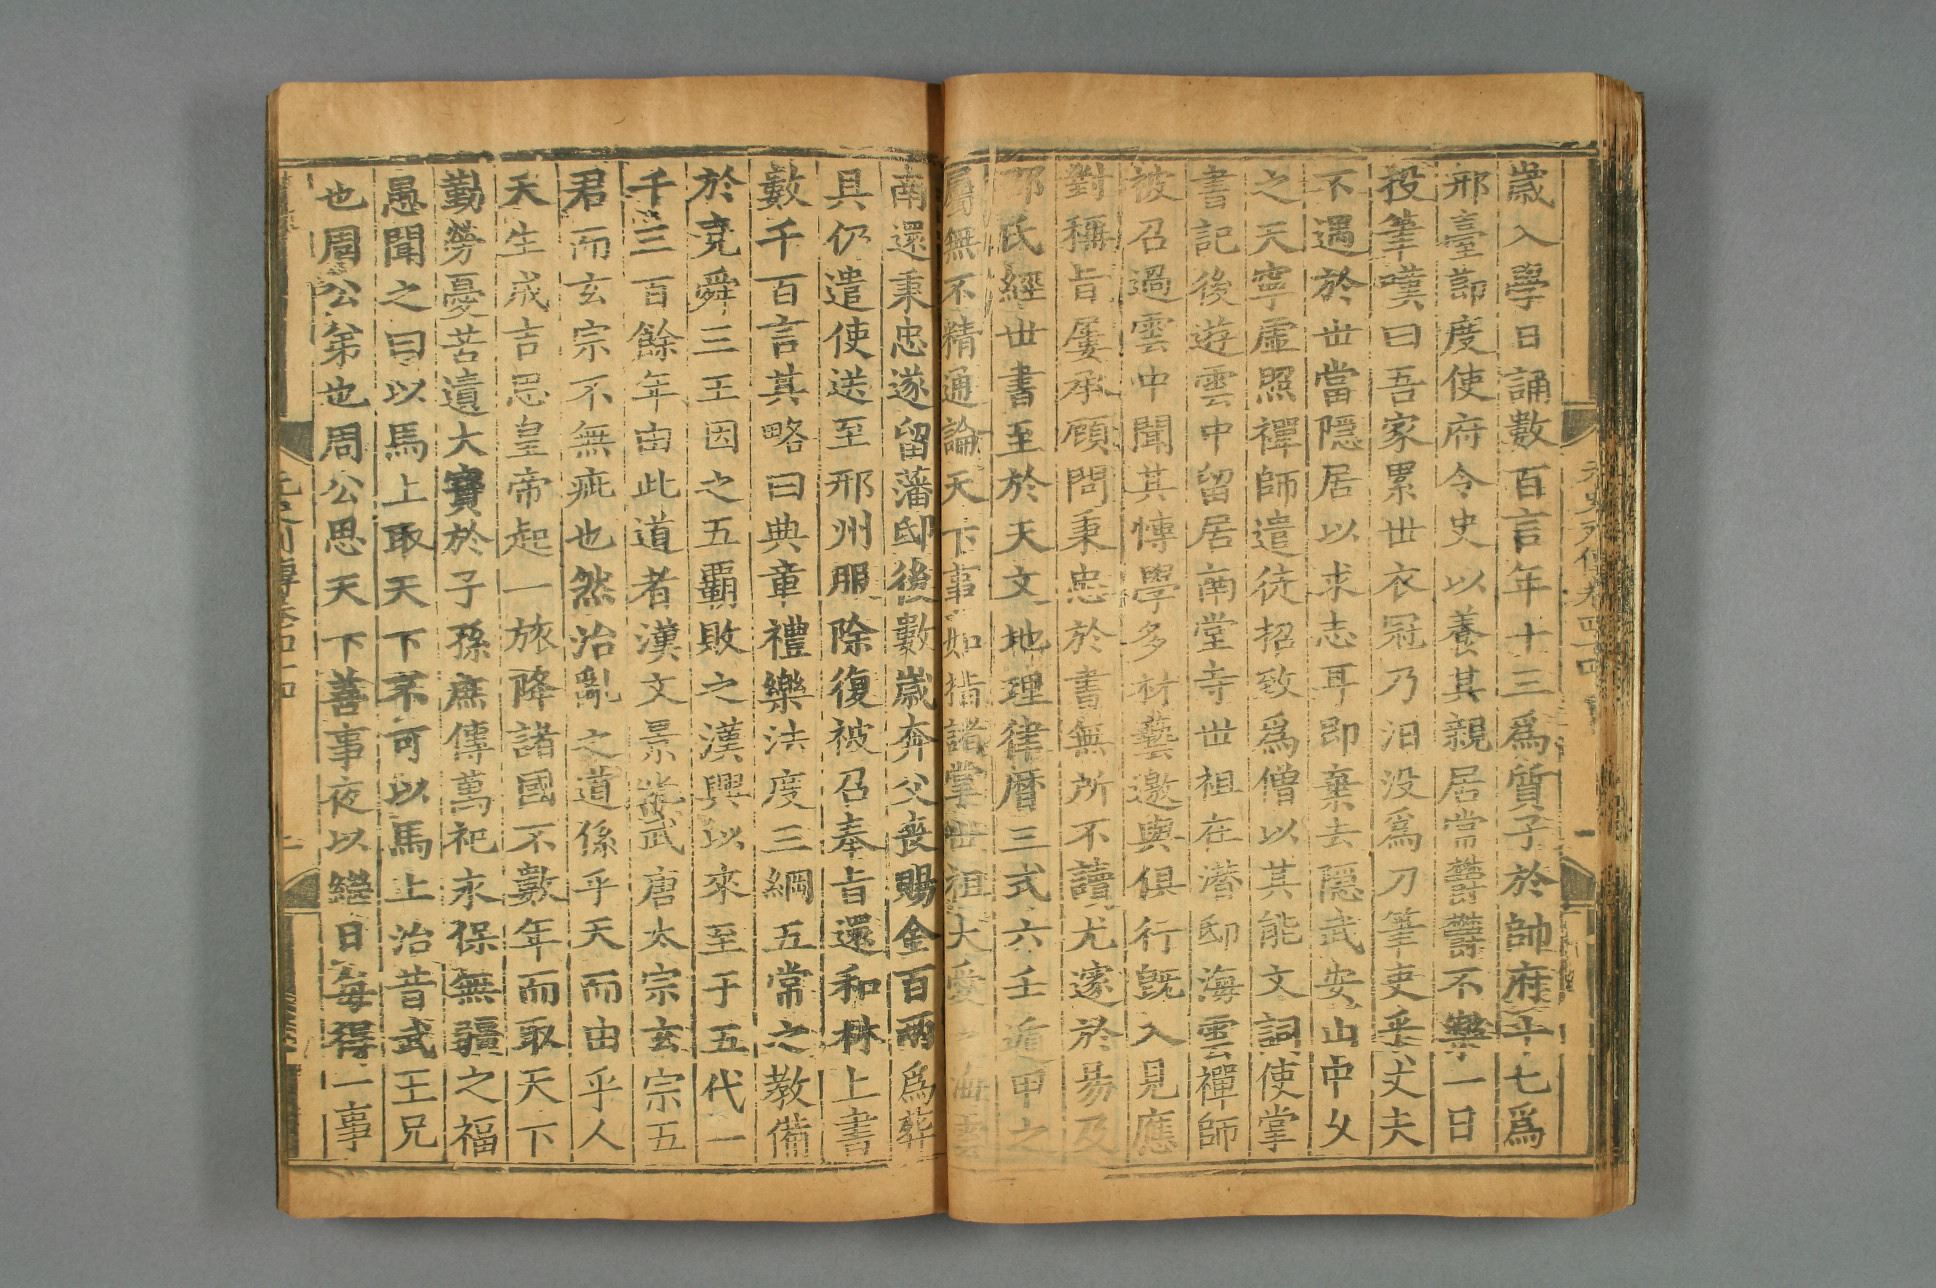 歲入學日誦數百言年十三爲質子於帥府十七爲
邢臺節度使府令史以養其親居常鬱鬱不樂一日
投筆嘆曰吾家累世衣冠乃汨没爲刀筆吏乎丈夫
不遇於世當隱居以求志耳即棄去隱武安山中久
之天寧虛照禪師遣徒招致爲僧以其能文詞使掌
書記後遊雲中留居南堂寺世祖在潛邸海雲禪師
被召過雲中聞其博學多材藝邀與俱行旣入見應
對稱旨屢承顧問秉忠於書無所不讀尤邃於易及
邵氏經世書至於天文地理律曆三式六壬遁甲之
屬無不精通論天下事如指諸掌世祖大愛之海雲
南還秉忠遂留藩邸後數歲奔父喪賜金百兩爲葬
具仍遣使送至邢州服除復被召奉旨還和林上書
數千百言其略曰典章禮樂法度三綱五常之教備
於堯舜三王因之五霸敗之漢興以來至于五代一
千三百餘年由此道者漢文景光武唐太宗玄宗五
君而玄宗不無疵也然治亂之道係乎天而由乎人
天生成吉思皇帝起一旅降諸國不數年而取天下
勤勞憂苦遺大寶於子孫庶傳萬祀永保無疆之福
愚聞之曰以馬上取天下不可以馬上治昔武王兄
也周公弟也周公思天下善事夜以繼日每得一事